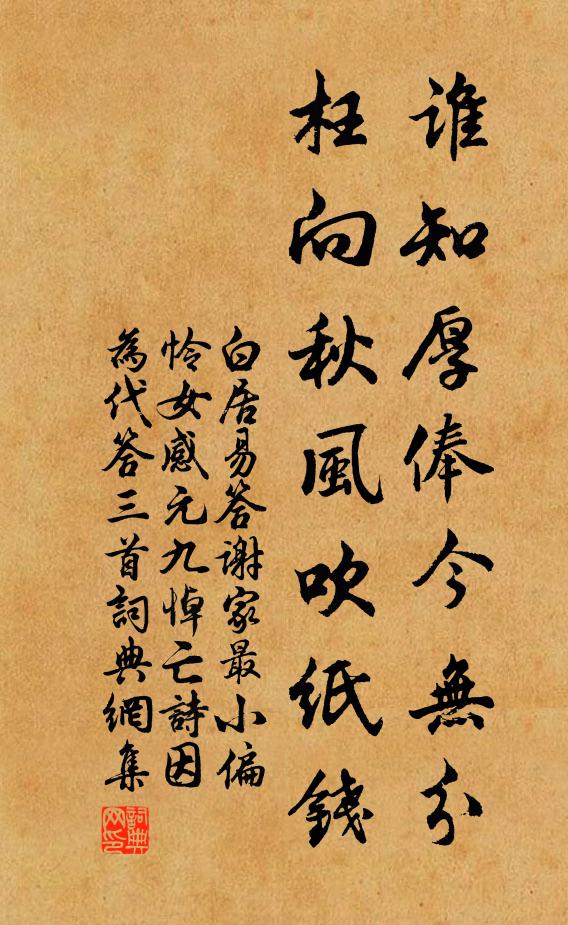 誰知厚俸今無分
枉向秋風吹紙錢
白居易答謝家最小偏
怜女感元九悼亡詩因
為代答三首詞典網集
詞典
网印